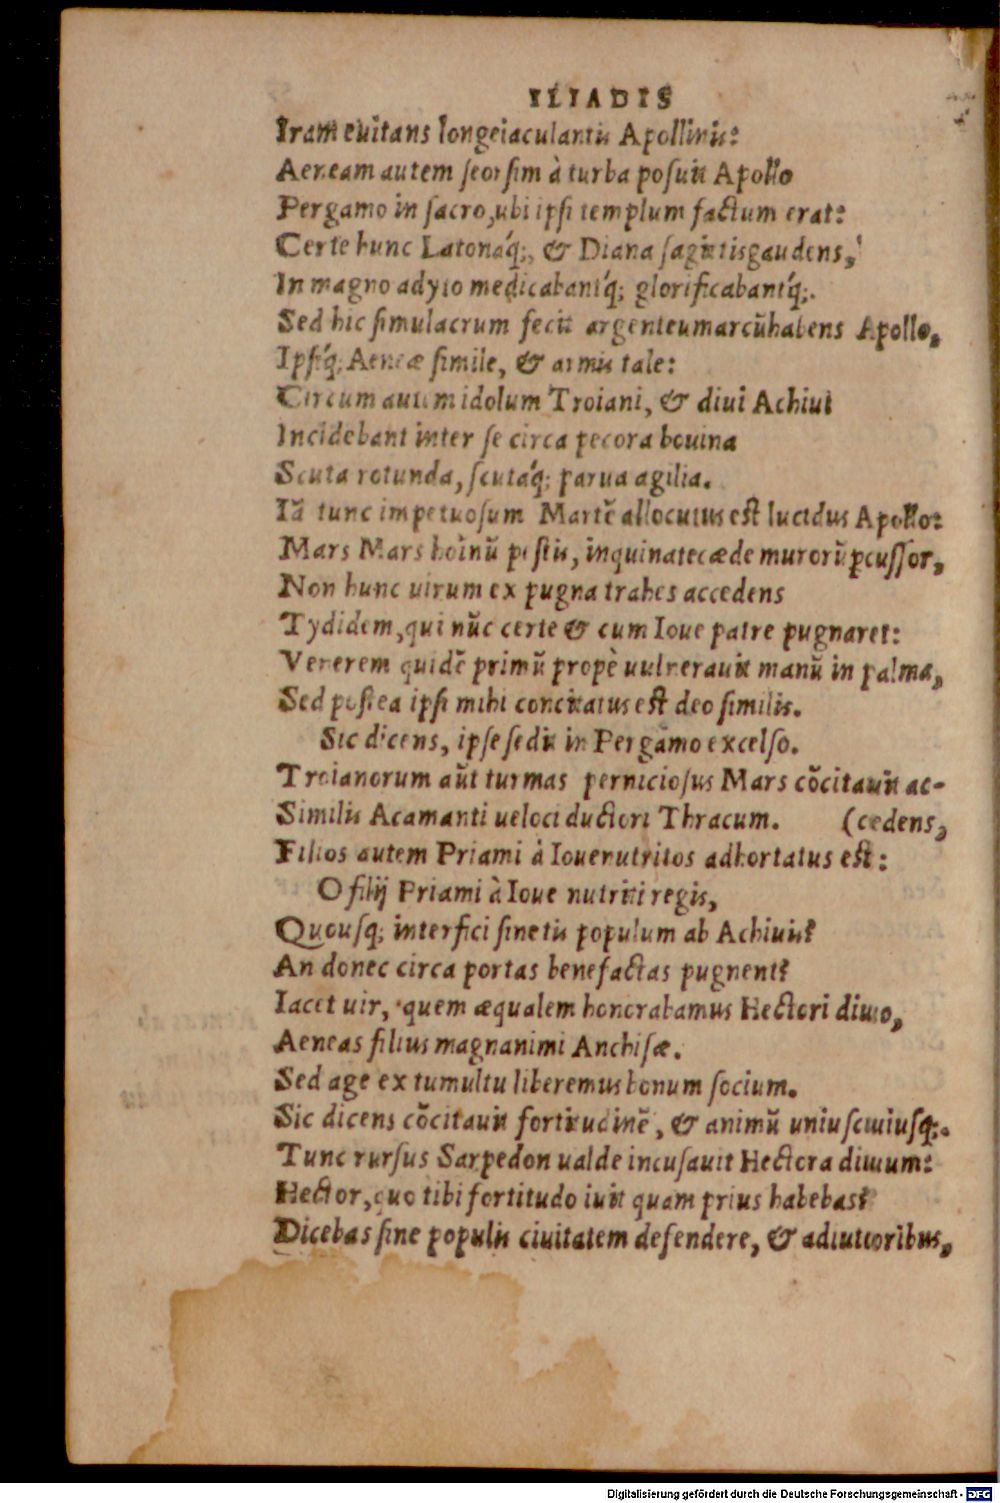 ILIADIS
Iram euitans longeiaculantis Apollinis:
Aeneam autem seorsim à turba posuit Apollo
Pergamo in sacro, ubi ipsi templum factum erat:
Certe hunc Latonáq;, & Diana sagittisgaudens,
In magno adyto medicabantq́; glorificabantq́;.
Sed hic simulacrum fecit argenteumarcũhabens Apollo,
Ipsiq́; Aeneæ simile, & armis tale:
Circum autem idolum Troiani, & diui Achiui
Incidebant inter se circa pecora bouina
Scuta rotunda, scutáq; parua agilia.
Iã tunc impetuosum Martẽ allocutus est lucidus Apollo:
Mars Mars hoinũ pestis, inquinatecæde murorũ ꝑcussor,
Non hunc uirum ex pugna trahes accedens
Tydidem, qui nũc certe & cum Ioue patre pugnaret:
Venerem quidẽ primũ propè uulnerauit manũ in palma,
Sed postea ipsi mihi concitatus est deo similis.
Sic dicens, ipse sedit in Pergamo excelso.
Troianorum aũt turmas perniciosus Mars cõcitauit ac-
Similis Acamanti ueloci ductori Thracum. (cedens,
Filios autem Priami à Ioue nutritos adhortatus est:
O filij Priami à Ioue nutriti regis,
Quousq; interfici sinetis populum ab Achiuis?
An donec circa portas benefactas pugnent?
Iacet uir, quem æqualem honorabamus Hectori diuo,
Aeneas filius magnanimi Anchisæ.
Sed age ex tumultu liberemus bonum socium.
Sic dicens cõcitauit fortitudinẽ, & animũ uniuscuiusq;.
Tunc rursus Sarpedon ualde incusauit Hectora diuum:
Hector, quo tibi fortitudo iuit quam prius habebas?
Dicebas sine populis ciuitatem defendere, & adiutoribus,
Digitalisierung gefördert durch die Deutsche Forschungsgemeinschaft - DFG